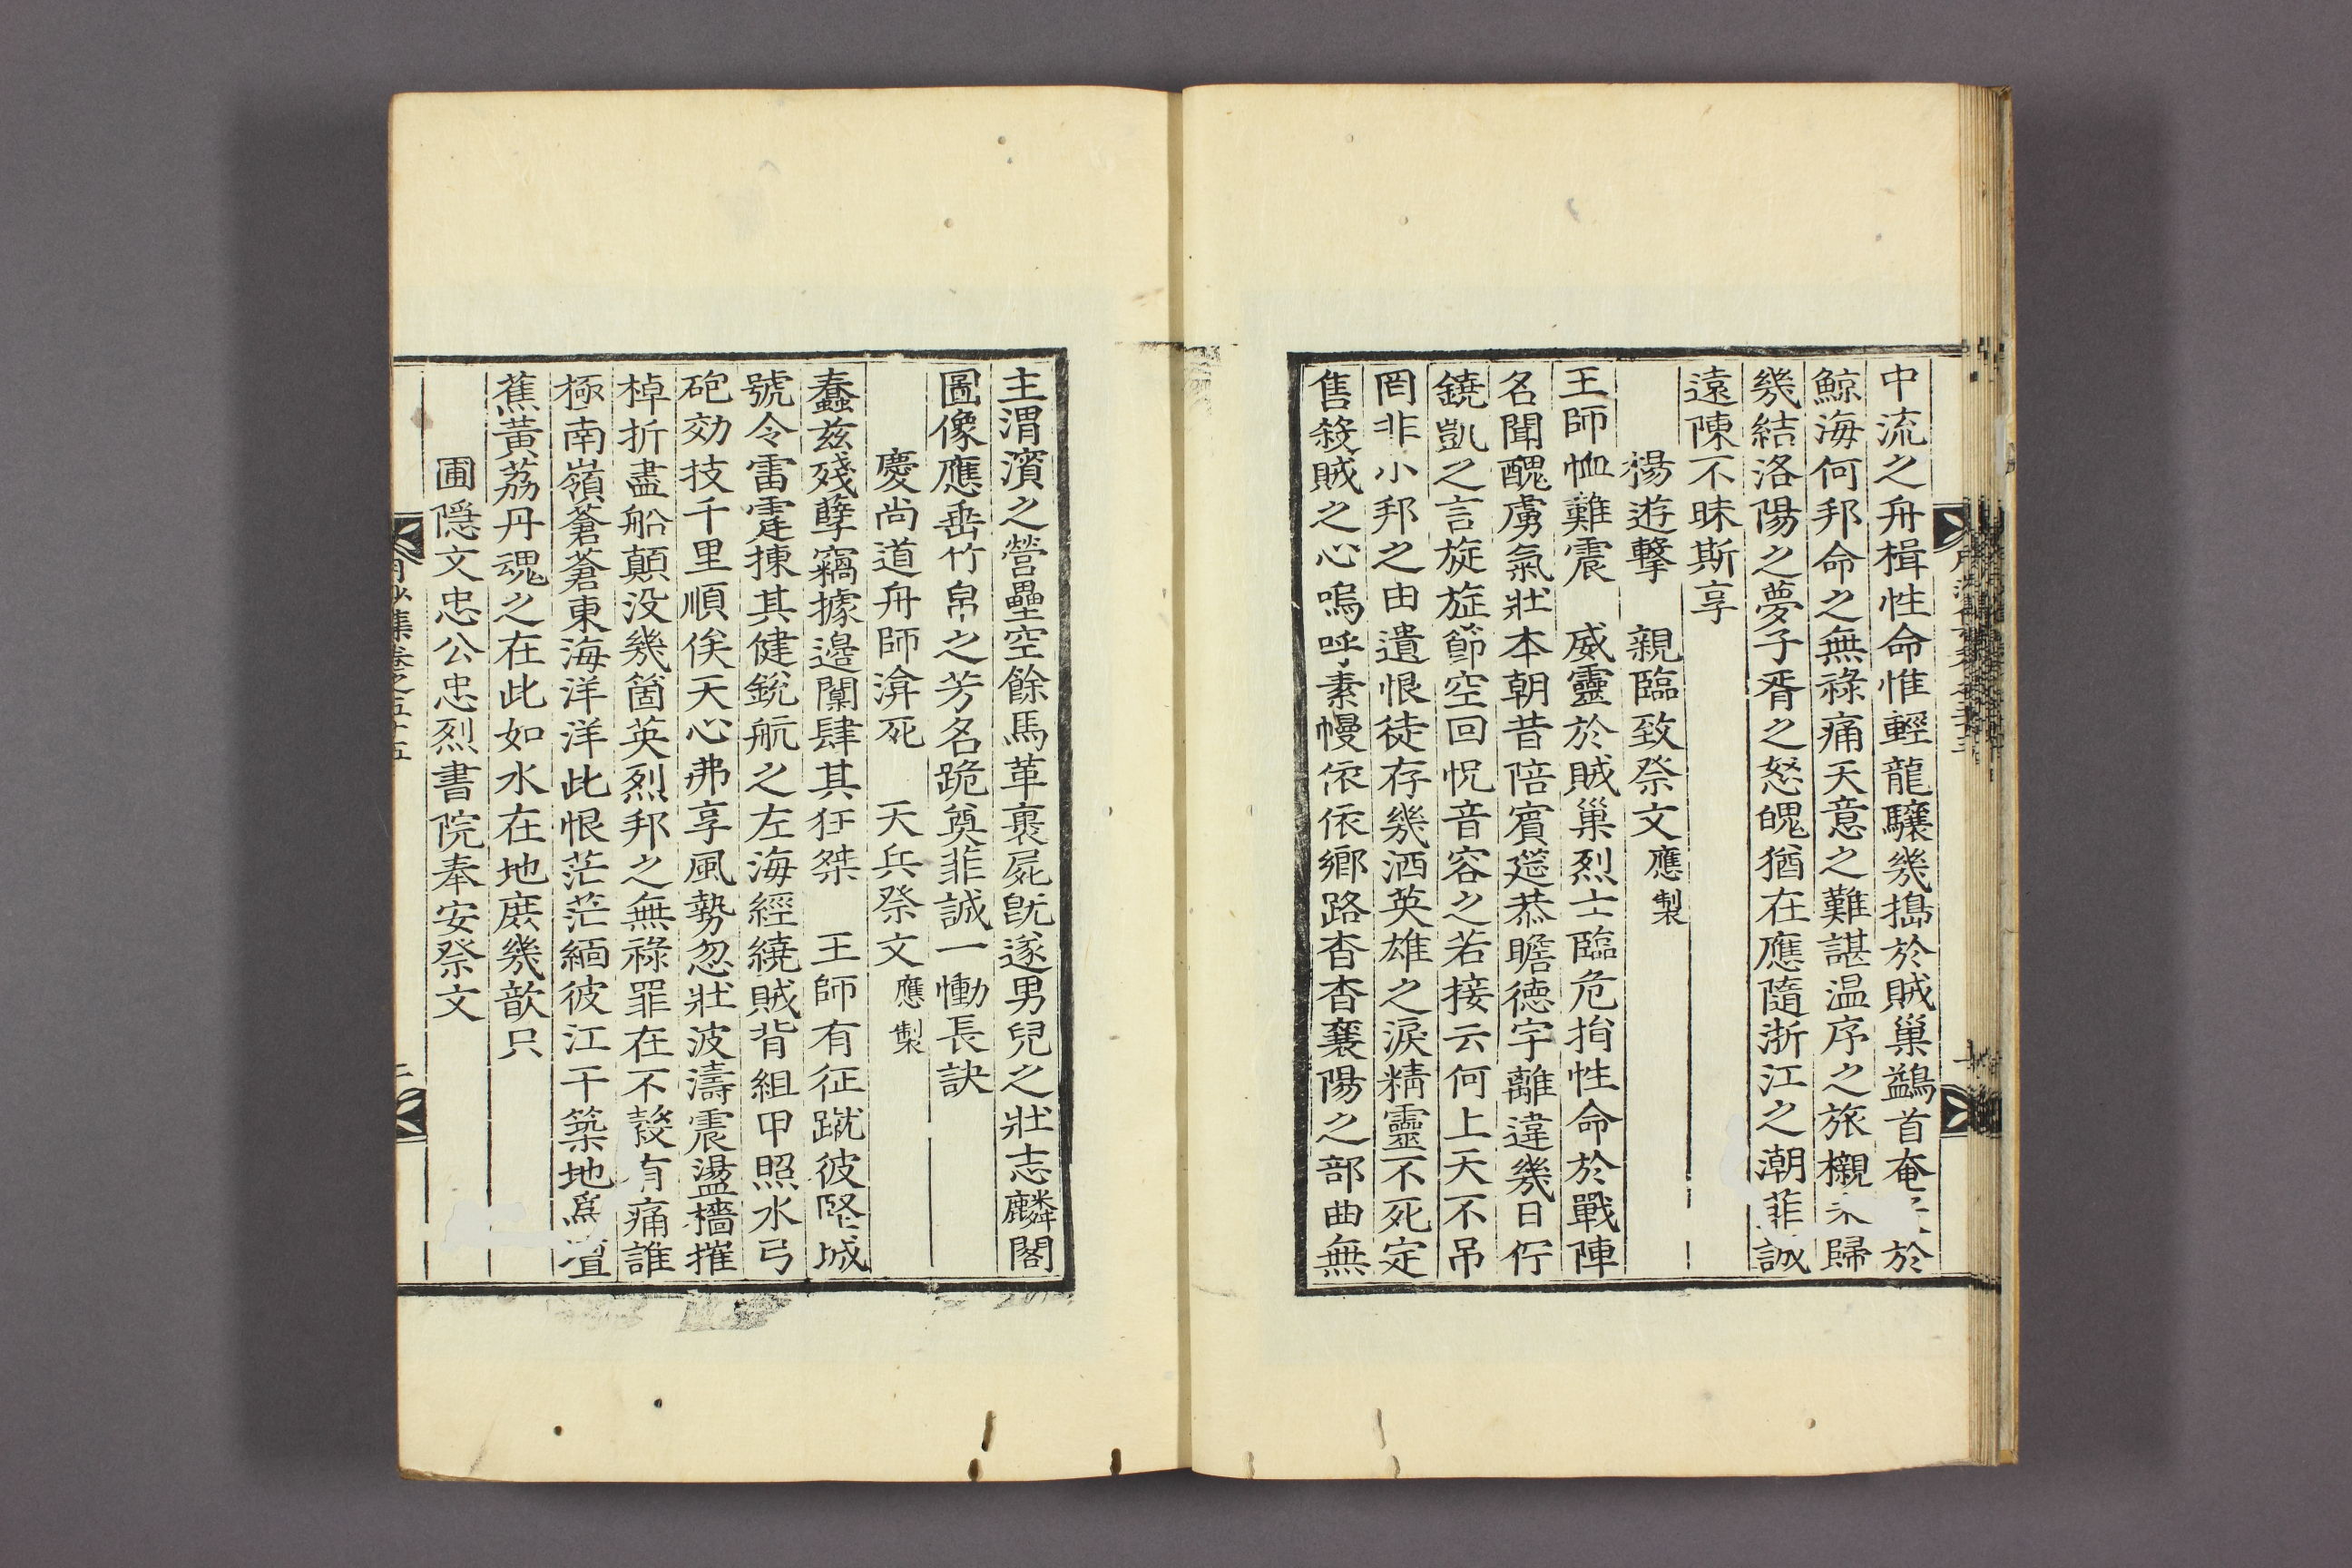 中流之舟楫性命惟輕龍驤幾搗於賊巢鷁首奄於
鯨海何邦命之無祿痛天意之難諶温序之旅櫬歸
幾結洛陽之夢子胥之怒魄猶在應隨浙江之潮菲誠
遠陳不昧斯享
楊遊擊 親臨致祭文 應製
王師恤難震 威靈於賊巢烈士臨危捐性命於戰陣
名聞醜虜氣壯本朝昔陪賓筵恭瞻德宇離違幾日佇
鐃凱之言旋旌節空回怳音容之若接云何上天不吊
罔非小邦之由遺恨徒存幾洒英雄之淚精靈不死定
售殺賊之心嗚呼素幔依依鄉路杳杳襄陽之部曲無
主渭濱之營壘空餘馬革裹屍旣遂男兒之壯志麟閣
圖像應垂竹帛之芳名跪奠菲誠一慟長訣
慶尙道舟師渰死 天兵祭文 應製
蠢玆殘孽竊據邊闑肆其狂桀 王師有征蹴彼堅城
號令雷霆揀其健銳航之左海經繞賊背組甲照水弓
砲効技千里順俟天心弗享風勢忽壯波濤震盪檣摧
棹折盡船顚没幾箇英烈邦之無祿罪在不穀有痛誰
極南嶺蒼蒼東海洋洋此恨茫茫緬彼江干築地爲壇
蕉黃荔丹魂之在此如水在地庶幾歆只
圃隱文忠公忠烈書院奉安祭文
月沙集卷之五十五